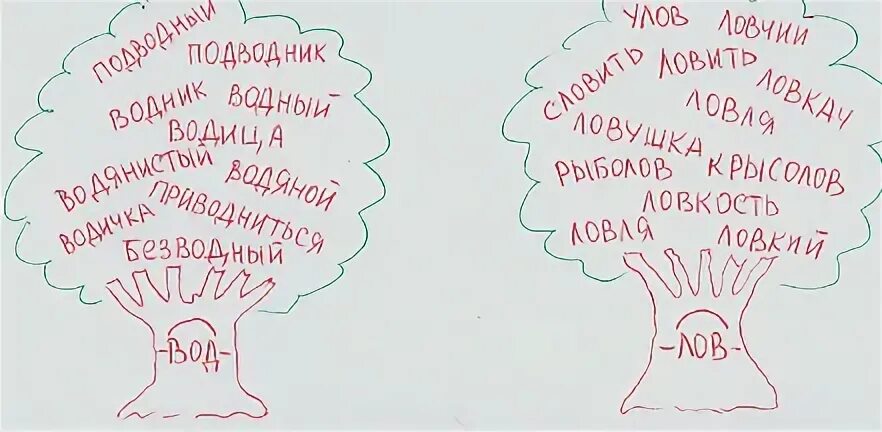 ПОДВОДНЫЙ
ПОДВОДНИК
ВОДНИК ВОДНЫЙ
ВОДИЦА
ВОДЯНИСТЫЙ ВОДЯНОЙ
ВОДИЧКА ПРИВОДНИТЬСЯ
БЕЗВОДНЫЙ
-ВОД-
УЛОВ ЛОВЧИЙ
СЛОВИТЬ ЛОВИТЬ ЛОВКАЧ
ЛОВЛЯ
ЛОВУШКА
РЫБОЛОВ КРЫСОЛОВ
ЛОВКОСТЬ
ЛОВЛЯ ЛОВКИЙ
-ЛОВ-